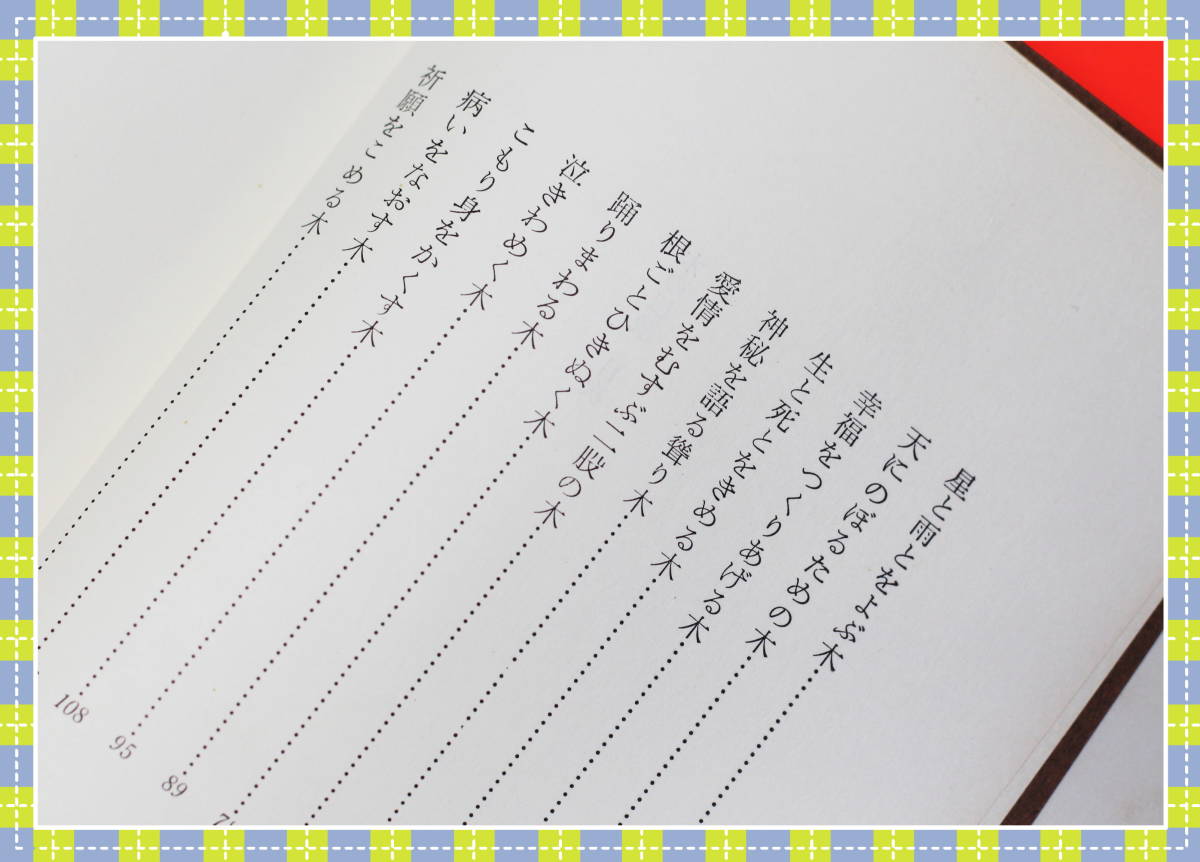 星と雨とをよぶ木
天にのぼるための木
幸福をつくりあげる木
生と死とをきめる木
神秘を語る聳り木
愛情をむすぶ二股の木
根ごとひきぬく木
踊りまわる木………89
泣きわめく木………95
こもり身をかくす木………108
病いをなおす木
祈願をこめる木